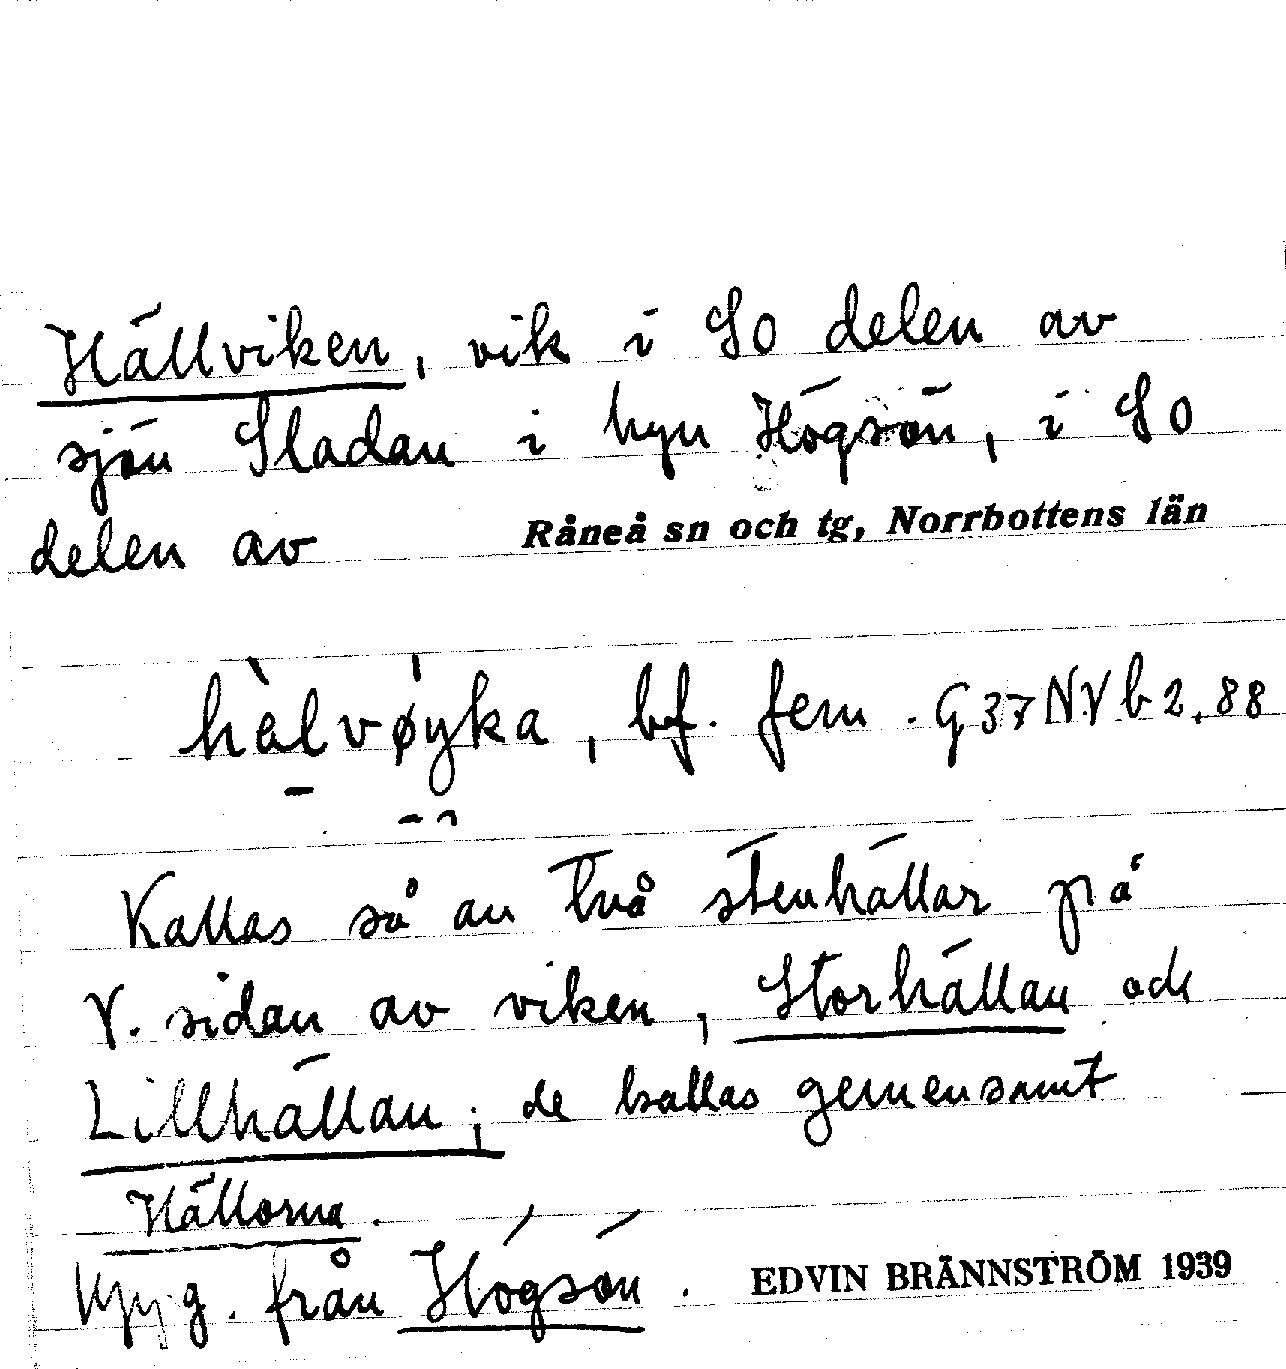 Hällviken, vik i SO delen av
sjön Sladan i byn Högsön, i SO
delen av Råneå sn och tg, Norrbottens län
hèlvøyka, bf. fem. G37NVb2,88
Kallas så av två stenhällar på
V. sidan av viken, Storhällan och
Lillhällan; de kallas gemensamt
Hällorna.
Uppg. från Högsön. EDVIN BRÄNNSTRÖM 1939